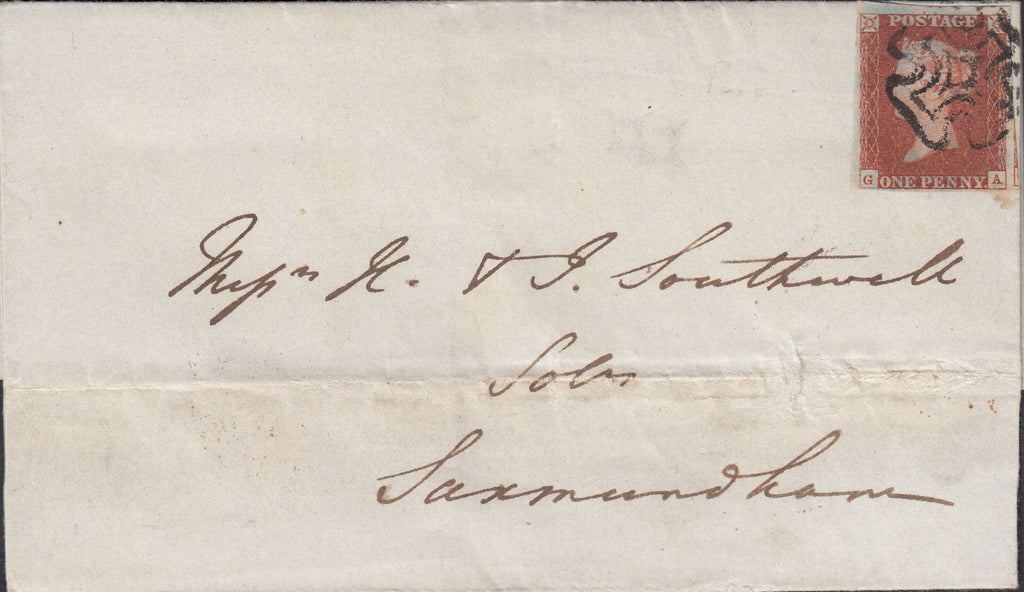 POSTAGE
G ONE PENNY A
Messrs H. & J. Southwell
Solrs
Saxmundham